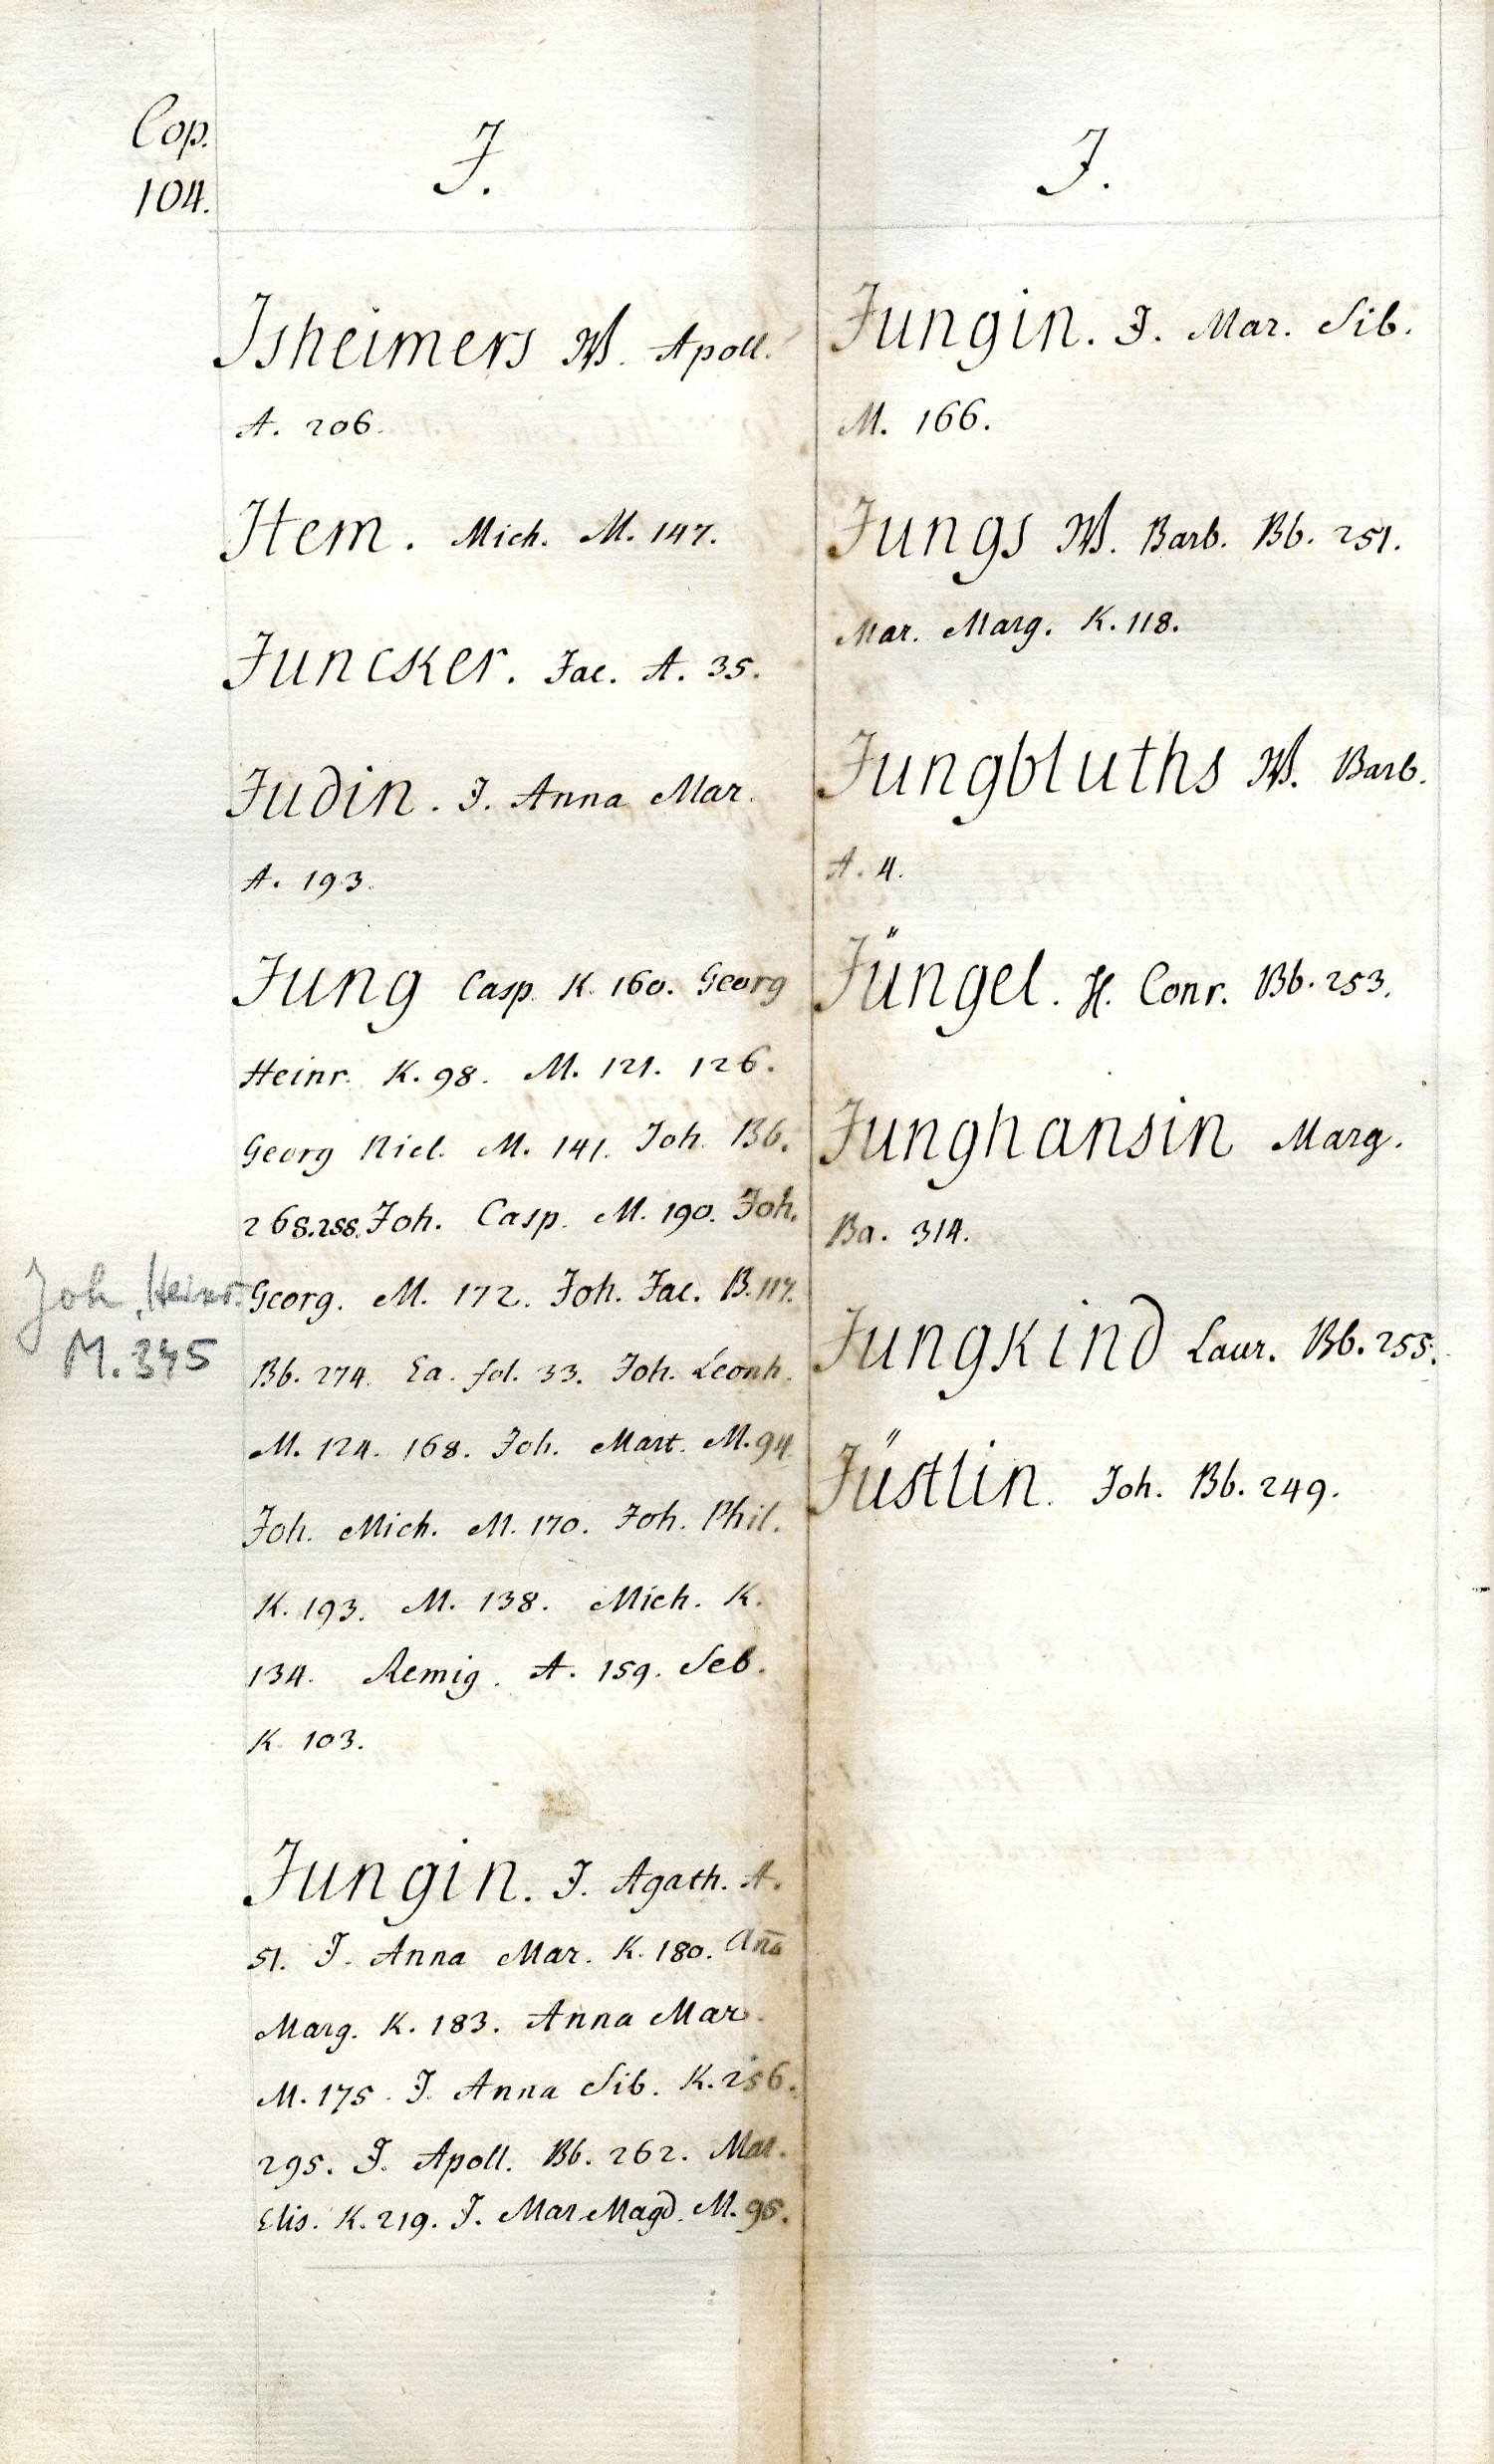 Cop.
104.
J.
Jsheimers W. Apoll.
A. 206.
Jtem. Mich. M. 147.
Juncker. Jac. A. 35.
Judin. J. Anna Mar.
A. 193.
Jung Casp. K. 160. Georg
Heinr. K. 98. M. 121. 126.
Georg Nicl. M. 141. Joh. Bb.
268. 288. Joh. Casp. M. 190. Joh.
Georg. M. 172. Joh. Jac. B. 117.
Joh. Heinr.
M. 345
Bb. 274. Ea. fol. 33. Joh. Leonh.
M. 124. 168. Joh. Mart. M. 94.
Joh. Mich. M. 170. Joh. Phil.
K. 193. M. 138. Mich. K.
134. Remig. A. 159. Seb.
K. 103.
Jungin. J. Agath. A.
51. J. Anna Mar. K. 180. Aña
Marg. K. 183. Anna Mar.
M. 175. J. Anna Sib. K. 256.
295. J. Apoll. Bb. 262. Mar.
Elis. K. 219. J. Mar. Magd. M. 95.
J.
Jungin. J. Mar. Sib.
M. 166.
Jungs W. Barb. Bb. 251.
Mar. Marg. K. 118.
Jungbluths W. Barb.
A. 4.
Jüngel. H. Conr. Bb. 253.
Junghansin Marg.
Ba. 314.
Jungkind Laur. Bb. 255.
Jüstlin. Joh. Bb. 249.